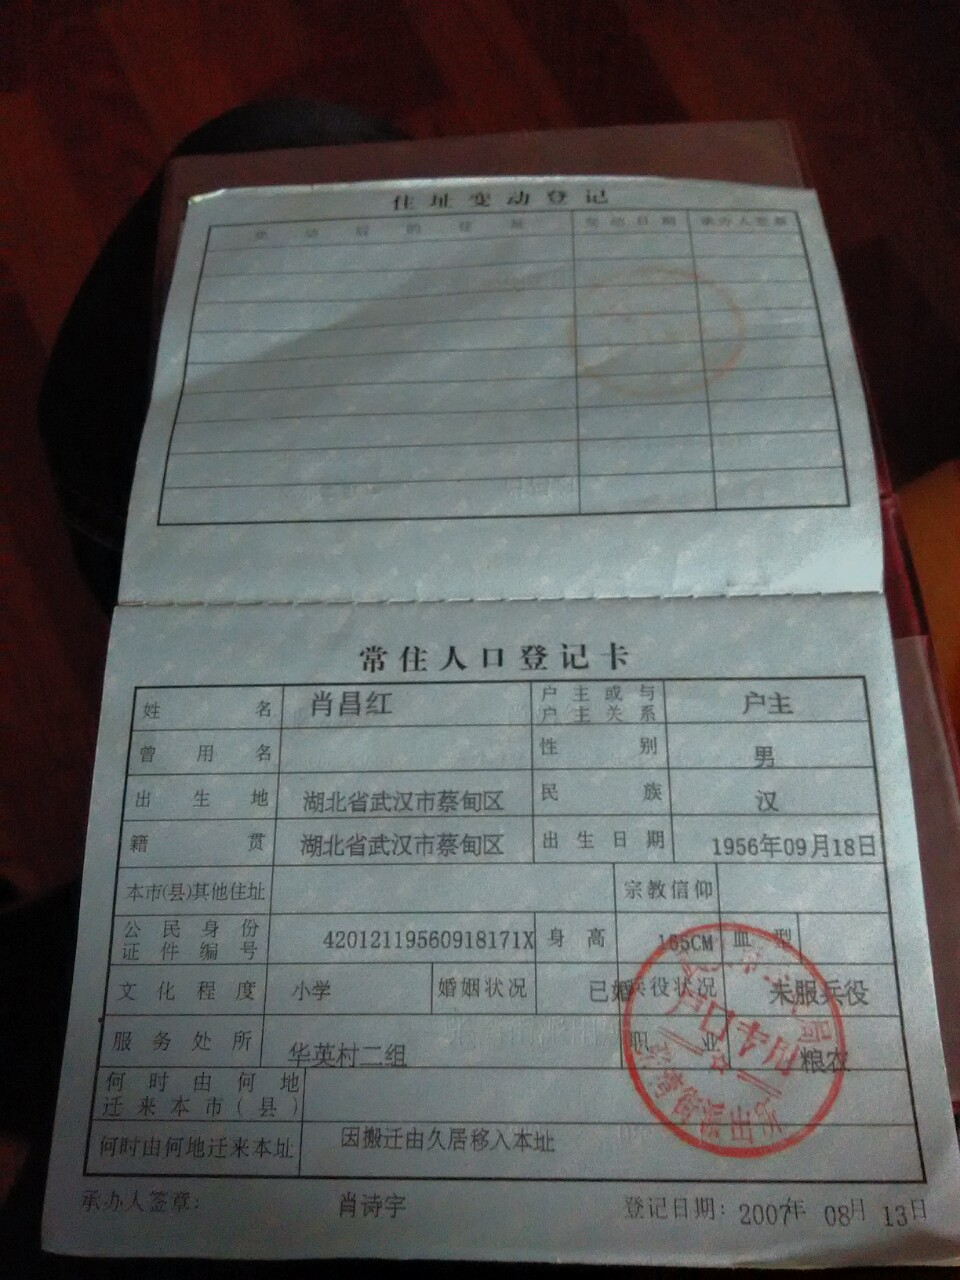 住址变动登记
变动后的住址 变动日期 承办人签章
常住人口登记卡
姓名 肖昌红 户主或与户主关系 户主
曾用名 性别 男
出生地 湖北省武汉市蔡甸区 民族 汉
籍贯 湖北省武汉市蔡甸区 出生日期 1956年09月18日
本市(县)其他住址 宗教信仰
公民身份证件编号 42012119560918171X 身高 165CM 血型
文化程度 小学 婚姻状况 已婚 兵役状况 未服兵役
服务处所 华英村二组 职业 粮农
何时由何地迁来本市(县)
何时由何地迁来本址 因搬迁由久居移入本址
户口专用
派出所
承办人签章: 肖诗宇 登记日期: 2007年 08月 13日